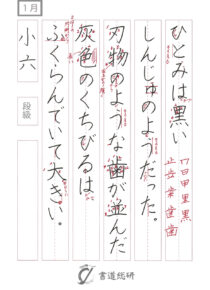 1月
ひとみは黒い
しんじゅのようだった。
刃物のような歯が並んだ
灰色のくちびるは
ふくらんでいて大きい。
小六
段級
書道総研